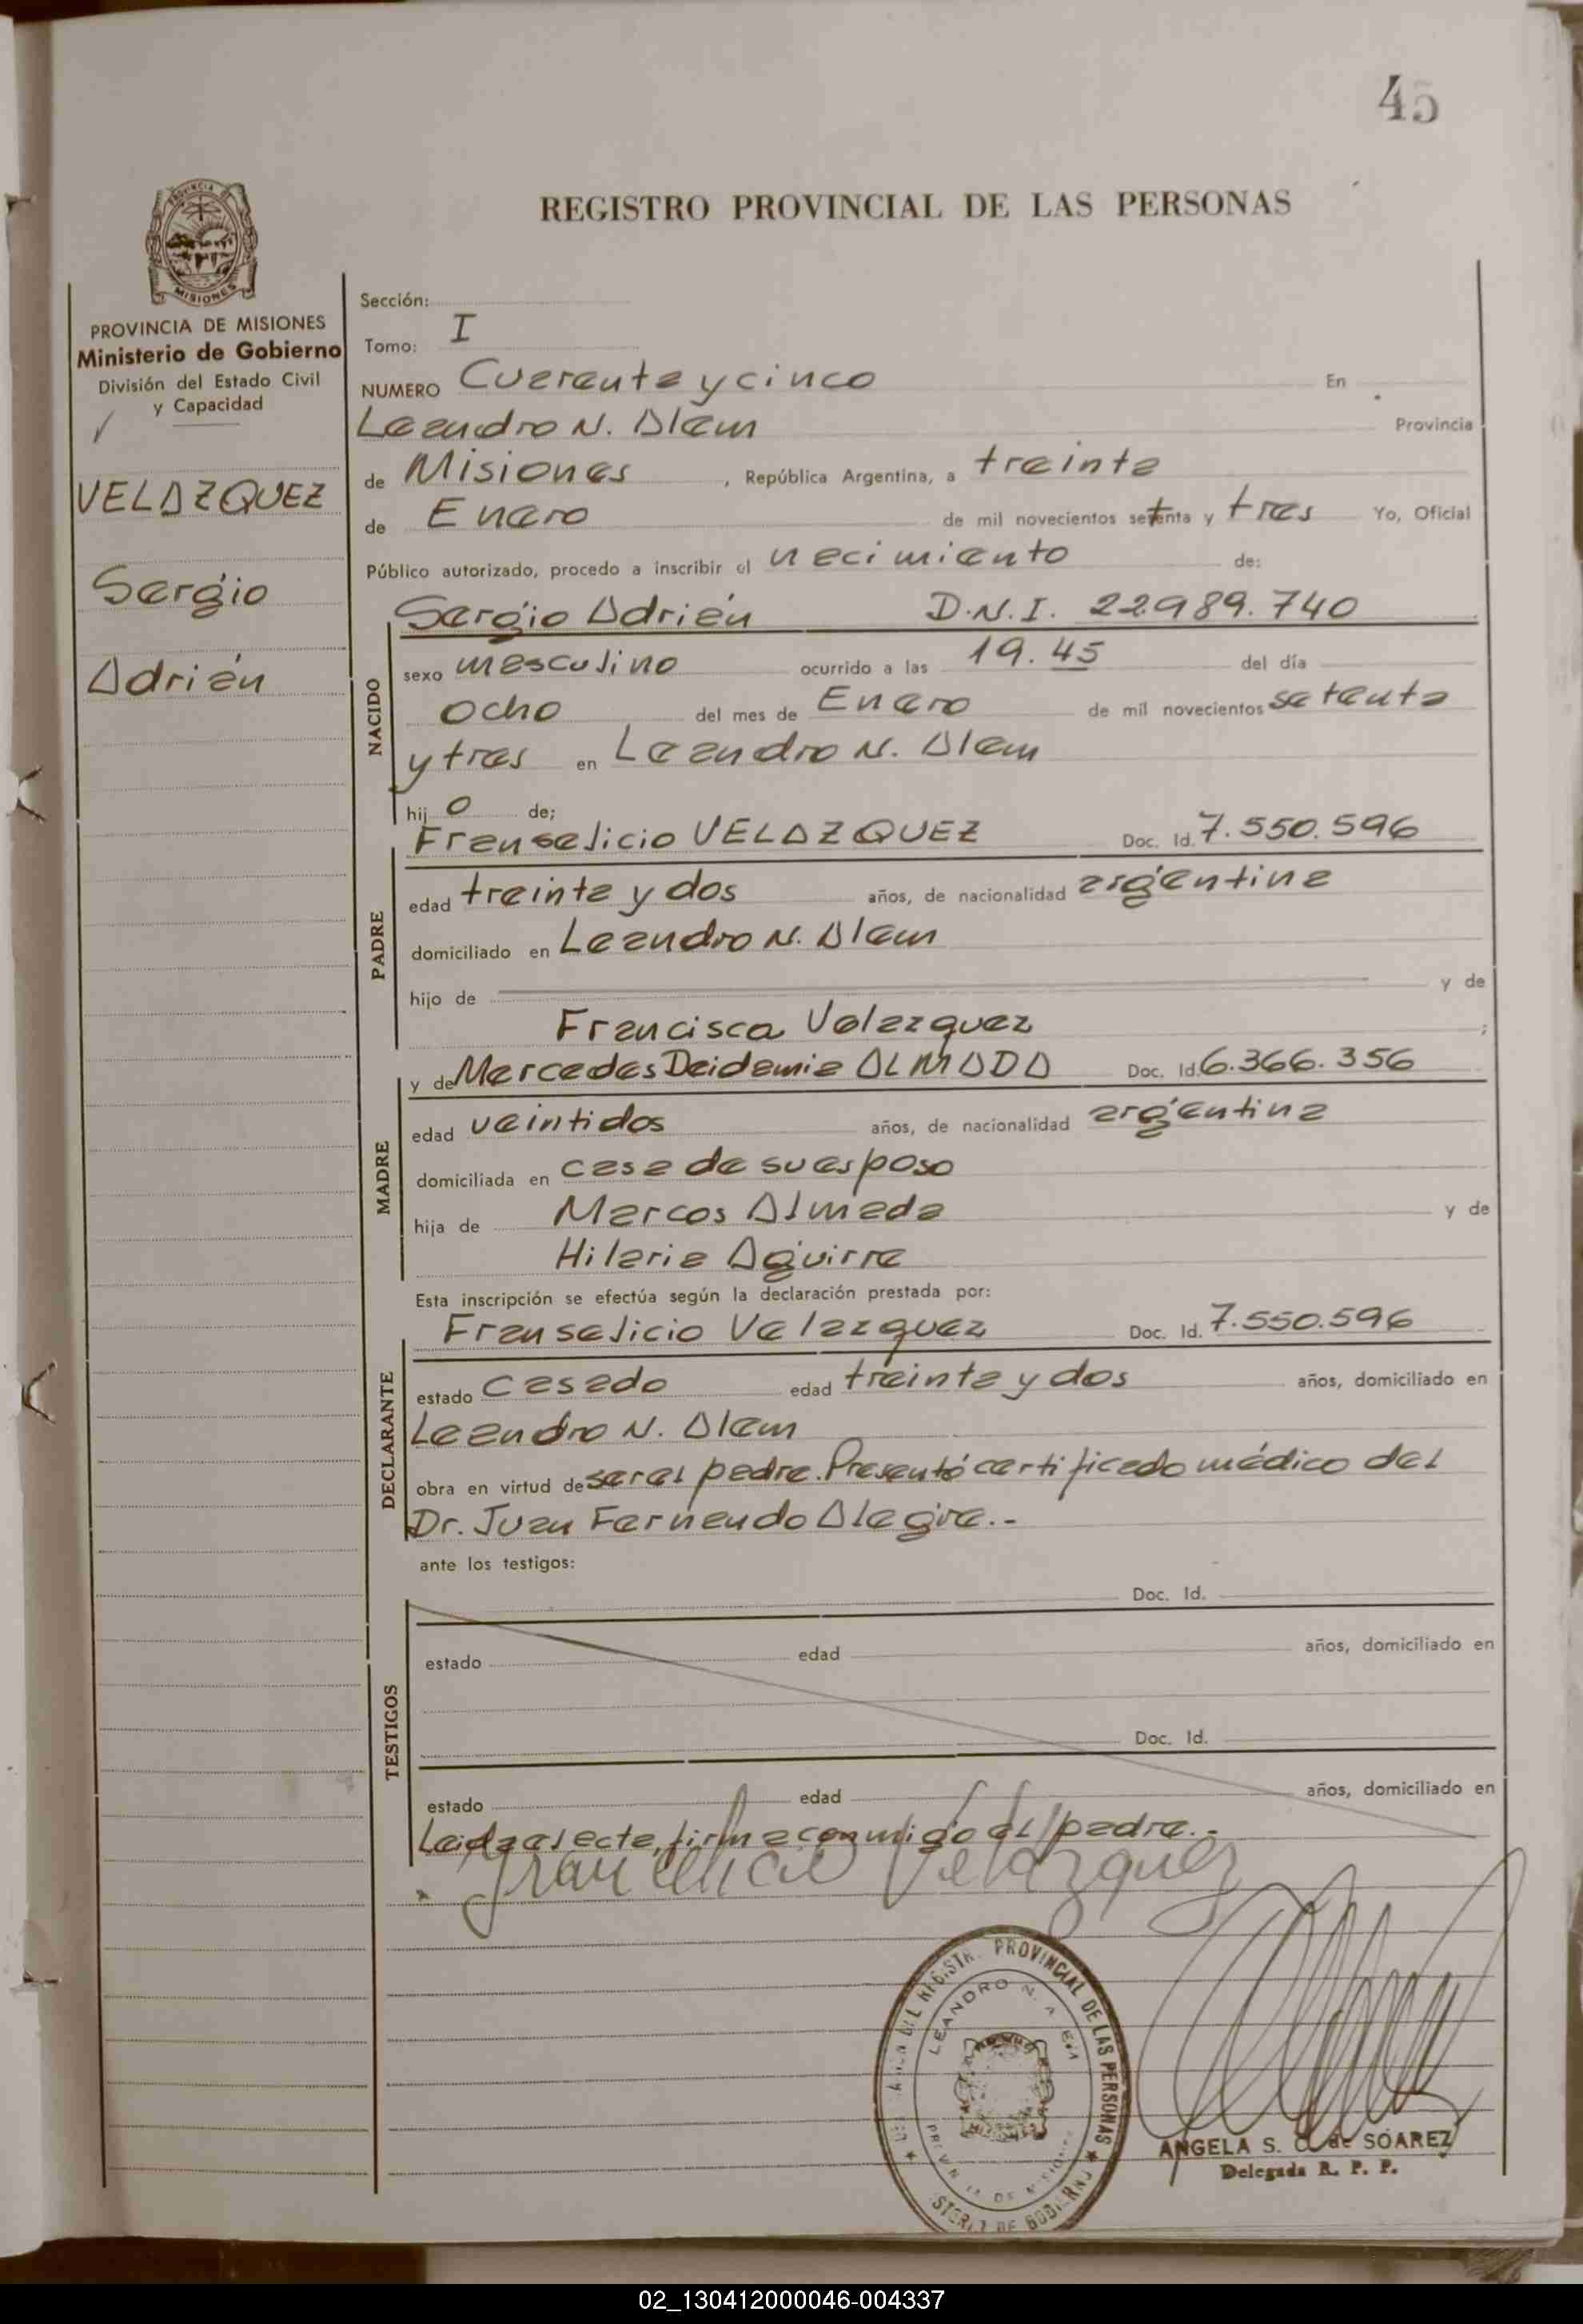 45
REGISTRO PROVINCIAL DE LAS PERSONAS
MISIONES
PROVINCIA DE MISIONES
Ministerio de Gobierno
División del Estado Civil
y Capacidad
VELAZQUEZ
Sergio
Adrián
Sección:
Tomo: I
NUMERO Cuarenta y cinco En
Leandro N. Alem Provincia
de Misiones, República Argentina, a treinta
de Enero de mil novecientos setenta y tres Yo, Oficial
Público autorizado, procedo a inscribir el nacimiento de:
Sergio Adrián D.N.I. 22.989.740
NACIDO
sexo masculino ocurrido a las 19.45 del día
ocho del mes de Enero de mil novecientos setenta
y tres en Leandro N. Alem
hijo de;
Franselicio VELAZQUEZ Doc. Id. 7.550.596
PADRE
edad treinta y dos años, de nacionalidad argentina
domiciliado en Leandro N. Alem
hijo de y de
Francisca Velazquez ;
y de Mercedes Deidamia ALMADA Doc. Id. 6.366.356
MADRE
edad veintidos años, de nacionalidad argentina
domiciliada en casa de su esposo
hija de Marcos Almada y de
Hilaria Aguirre
Esta inscripción se efectúa según la declaración prestada por:
Franselicio Velazquez Doc. Id. 7.550.596
DECLARANTE
estado casado edad treinta y dos años, domiciliado en
Leandro N. Alem
obra en virtud de ser el padre. Presentó certificado médico del
Dr. Juan Fernando Alegre.-
ante los testigos:
Doc. Id.
TESTIGOS
estado edad años, domiciliado en
Doc. Id.
estado edad años, domiciliado en
Leida el acta, firma conmigo el padre.-
Velazquez
PROVINCIAL DE LAS PERSONAS
LEANDRO N. ALEM
DE MISIONES
DE GOBIERNO
ANGELA S. C. de SOAREZ
Delegada R. P. P.
02_130412000046-004337